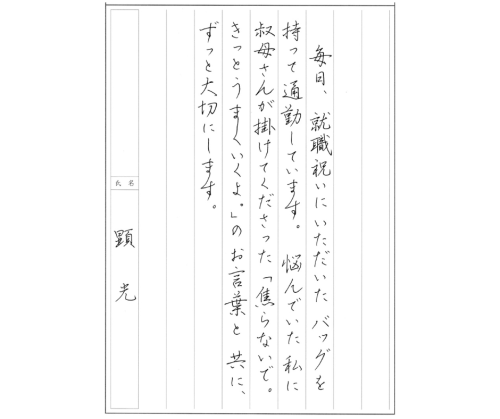 毎日、就職祝いにいただいたバッグを
持って通勤しています。悩んでいた私に
叔母さんが掛けてくださった「焦らないで。
きっとうまくいくよ。」のお言葉と共に、
ずっと大切にします。
氏名
顕光